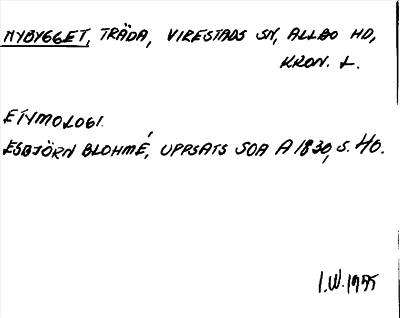 NYBYGGET, TRÄDA, VIRESTADS SN, ALLBO HD,
KRON. L.
ETYMOLOGI.
ESBJÖRN BLOHMÉ, UPPSATS SOA A 1830, S. 40.
I.W. 1995